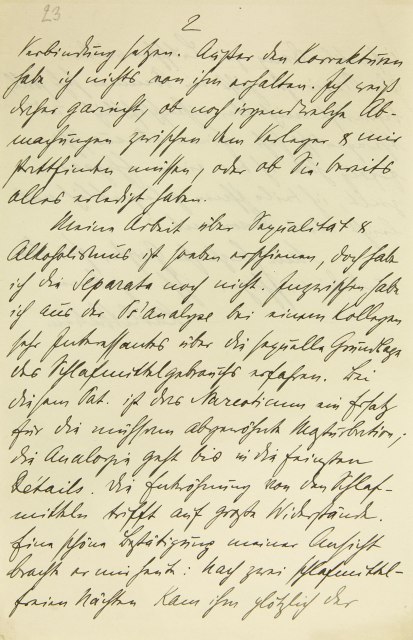 23
2
Verbindung setzen. Außer den Korrekturen
habe ich nichts von ihm erhalten. Ich weiß
daher garnicht, ob noch irgendwelche Ab-
machungen zwischen dem Verleger & mir
stattfinden müssen, oder ob Sie bereits
alles erledigt haben.
Meine Arbeit über Sexualität &
Alkoholismus ist soeben erschienen, doch habe
ich die Separata noch nicht. Inzwischen habe
ich aus der Ps'analyse bei einem Kollegen
sehr Interessantes über die sexuelle Grundlage
des Schlafmittelgebrauchs erfahren. Bei
diesem Pat. ist das Narcoticum ein Ersatz
für die mühsam abgewöhnte Masturbation;
die Analogie geht bis in die feinsten
Details. Die Entwöhnung von den Schlaf-
mitteln trifft auf größte Widerstände.
Eine schöne Bestätigung meiner Ansicht
brachte er mir heute: Nach zwei schlafmittel-
freien Nächten kam ihm plötzlich der